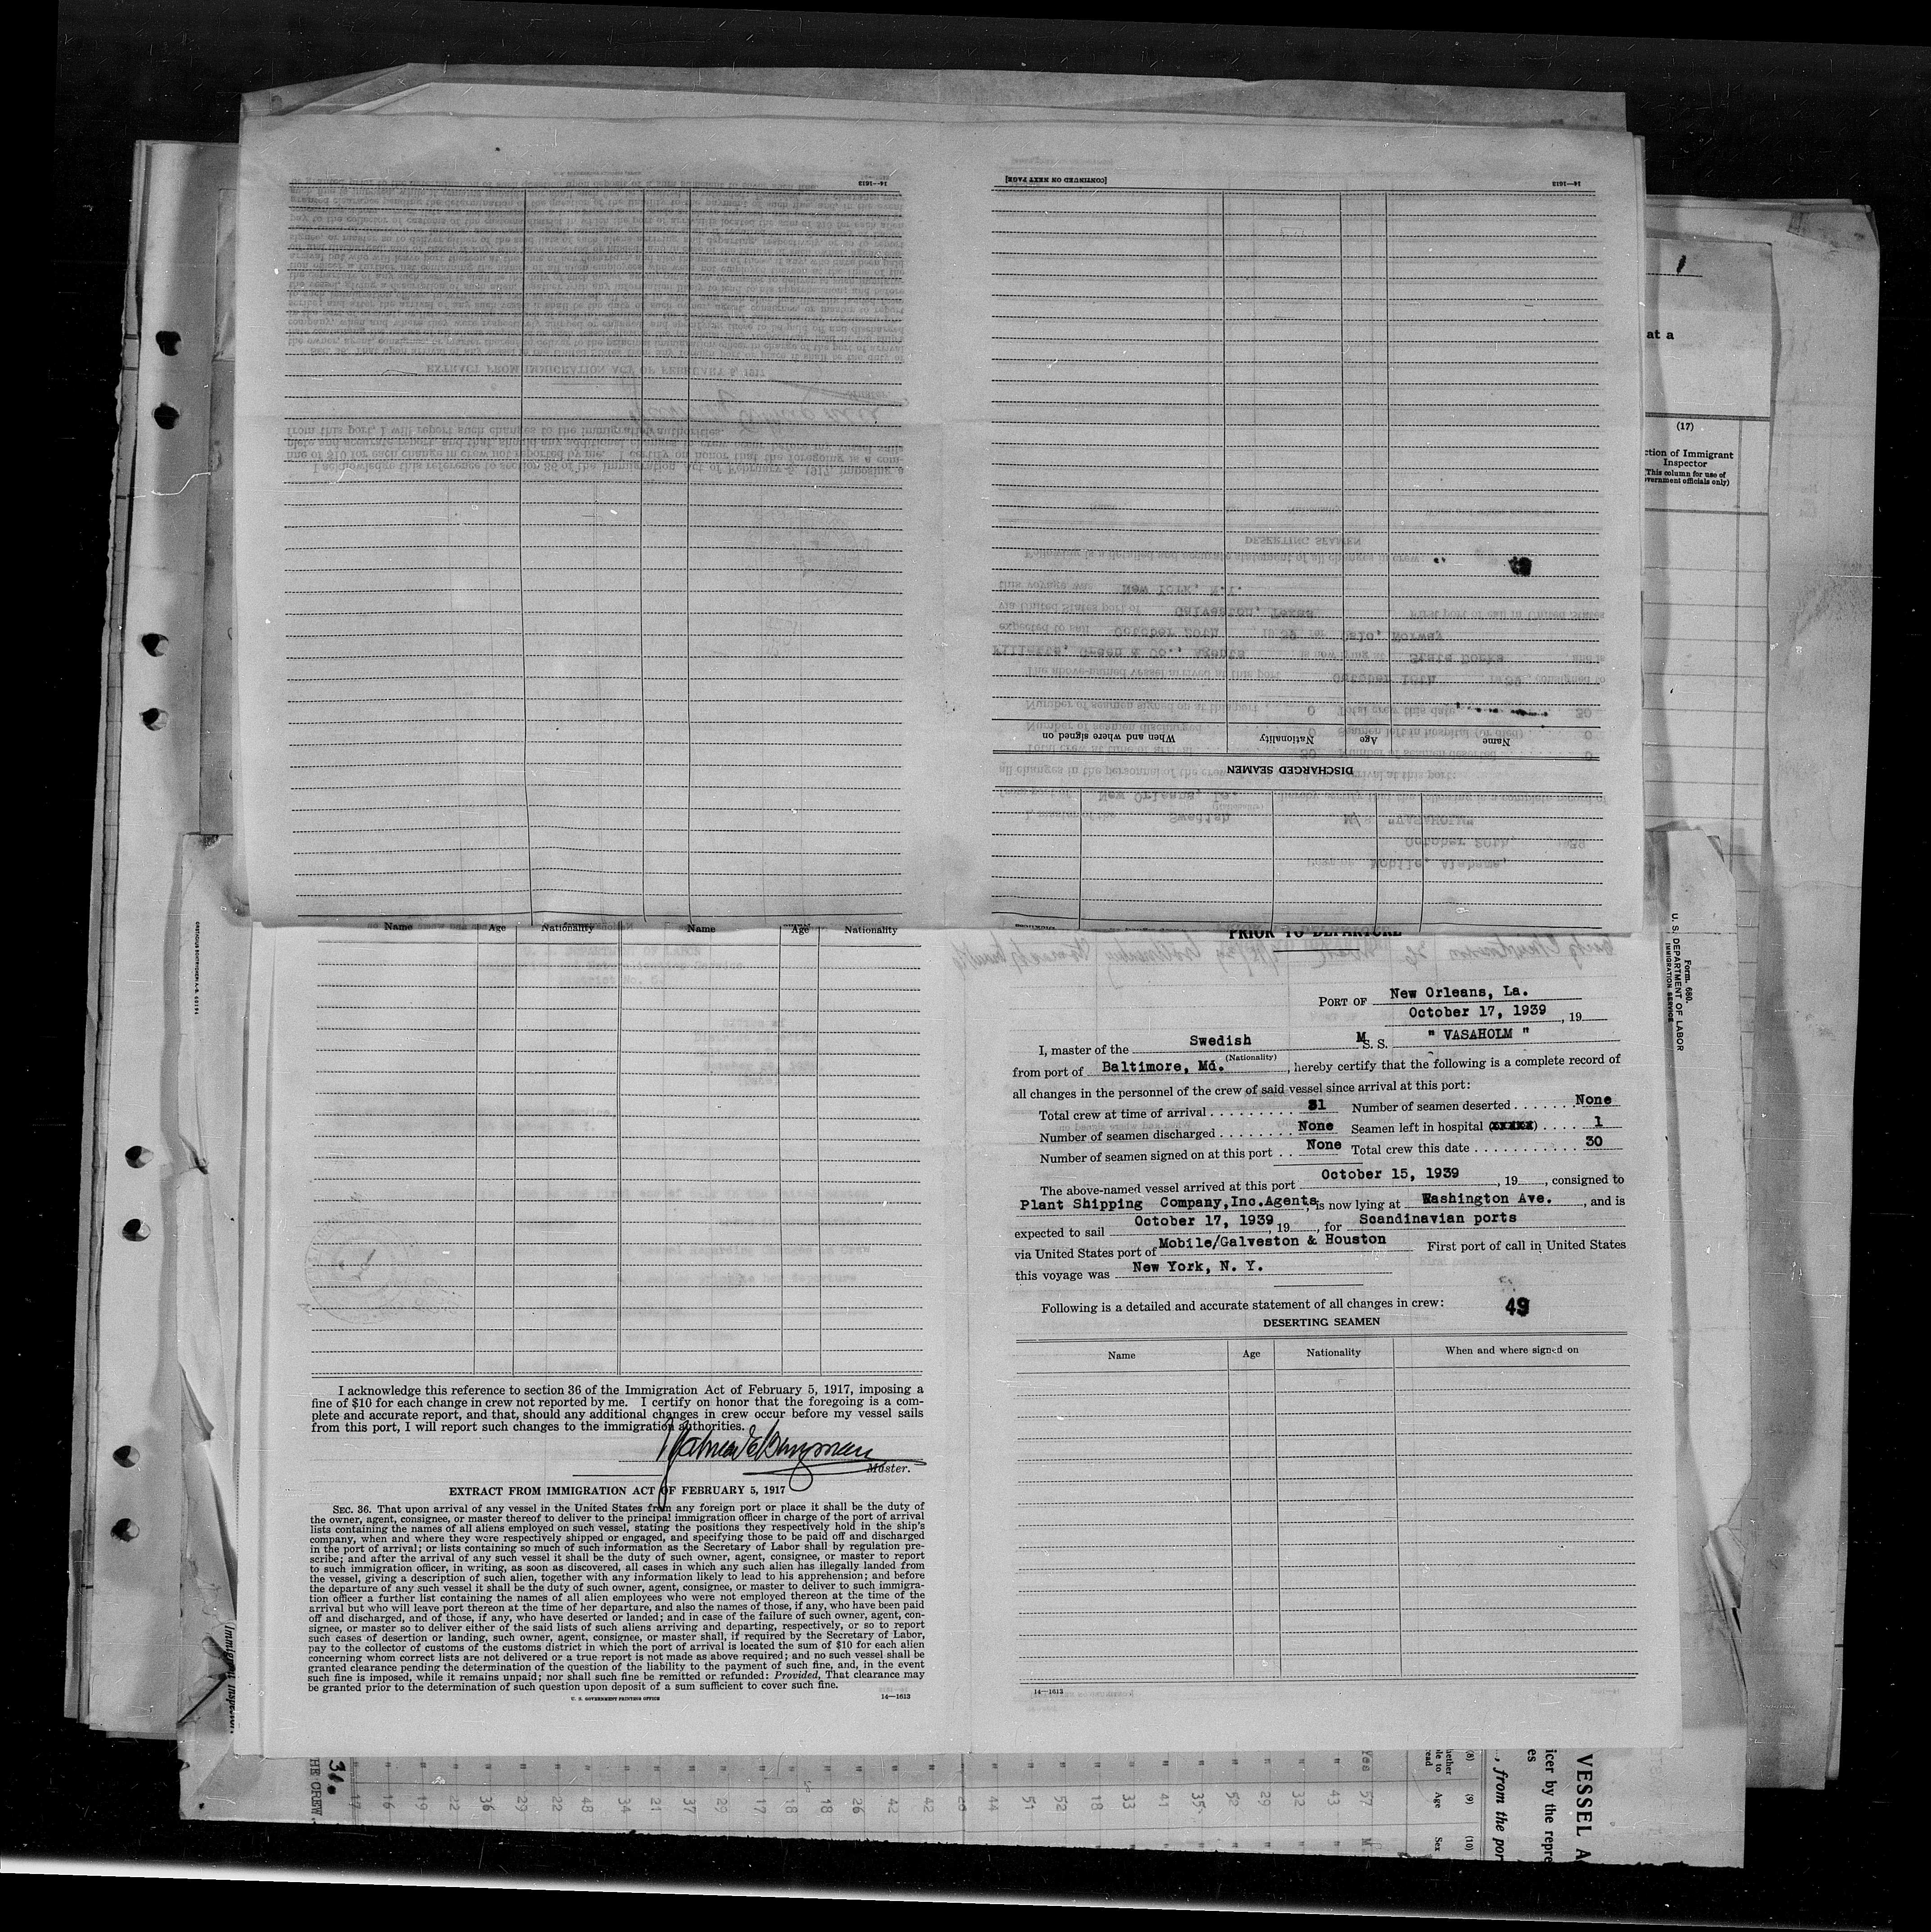 14—1613
[CONTINUED ON NEXT PAGE]
14—1613
When and where signed on
Nationality
Age
Name
DISCHARGED SEAMEN
at a
(17)
ction of Immigrant
Inspector
(This column for use of
vernment officials only)
Name Age Nationality Name Age Nationality
I acknowledge this reference to section 36 of the Immigration Act of February 5, 1917, imposing a
fine of $10 for each change in crew not reported by me. I certify on honor that the foregoing is a com-
plete and accurate report, and that, should any additional changes in crew occur before my vessel sails
from this port, I will report such changes to the immigration authorities.
Master.
EXTRACT FROM IMMIGRATION ACT OF FEBRUARY 5, 1917
SEC. 36. That upon arrival of any vessel in the United States from any foreign port or place it shall be the duty of
the owner, agent, consignee, or master thereof to deliver to the principal immigration officer in charge of the port of arrival
lists containing the names of all aliens employed on such vessel, stating the positions they respectively hold in the ship's
company, when and where they were respectively shipped or engaged, and specifying those to be paid off and discharged
in the port of arrival; or lists containing so much of such information as the Secretary of Labor shall by regulation pre-
scribe; and after the arrival of any such vessel it shall be the duty of such owner, agent, consignee, or master to report
to such immigration officer, in writing, as soon as discovered, all cases in which any such alien has illegally landed from
the vessel, giving a description of such alien, together with any information likely to lead to his apprehension; and before
the departure of any such vessel it shall be the duty of such owner, agent, consignee, or master to deliver to such immigra-
tion officer a further list containing the names of all alien employees who were not employed thereon at the time of the
arrival but who will leave port thereon at the time of her departure, and also the names of those, if any, who have been paid
off and discharged, and of those, if any, who have deserted or landed; and in case of the failure of such owner, agent, con-
signee, or master so to deliver either of the said lists of such aliens arriving and departing, respectively, or so to report
such cases of desertion or landing, such owner, agent, consignee, or master shall, if required by the Secretary of Labor,
pay to the collector of customs of the customs district in which the port of arrival is located the sum of $10 for each alien
concerning whom correct lists are not delivered or a true report is not made as above required; and no such vessel shall be
granted clearance pending the determination of the question of the liability to the payment of such fine, and, in the event
such fine is imposed, while it remains unpaid; nor shall such fine be remitted or refunded: Provided, That clearance may
be granted prior to the determination of such question upon deposit of a sum sufficient to cover such fine.
U. S. GOVERNMENT PRINTING OFFICE 14—1613
PRIOR TO DEPARTURE
PORT OF New Orleans, La.
October 17, 1939, 19
I, master of the Swedish M S. S. " VASAHOLM "
(Nationality)
from port of Baltimore, Md., hereby certify that the following is a complete record of
all changes in the personnel of the crew of said vessel since arrival at this port:
Total crew at time of arrival . . . . . . . . . . 31 Number of seamen deserted . . . . . . . None
Number of seamen discharged . . . . . . . . None Seamen left in hospital (xxxxx) . . . . 1
Number of seamen signed on at this port . . None Total crew this date . . . . . . . . . . . 30
The above-named vessel arrived at this port October 15, 1939, 19, consigned to
Plant Shipping Company,Inc.Agents, is now lying at Washington Ave., and is
expected to sail October 17, 1939, 19, for Scandinavian ports
via United States port of Mobile/Galveston & Houston First port of call in United States
this voyage was New York, N. Y.
Following is a detailed and accurate statement of all changes in crew: 49
DESERTING SEAMEN
Name Age Nationality When and where signed on
14—1613
Form 680.
U. S. DEPARTMENT OF LABOR
IMMIGRATION SERVICE
Immigrant Inspector.
VESSEL A
icer by the repre
es
, from the por
(8) (9) (10)
hether
le to
read
Age
Sex
Yes 57 M.
" 43 "
" 32 "
" 29 "
" 52 "
" 35 "
" 41 "
" 33 "
" 18 "
" 52 "
" 51 "
" 44 "
" 42
" 42
" 26
" 18
" 18
" 17
" 29
" 37
" 21
" 34
" 48
" 22
" 29
" 36
" 22
" 19
" 16
" 17
31.
HE CREW.